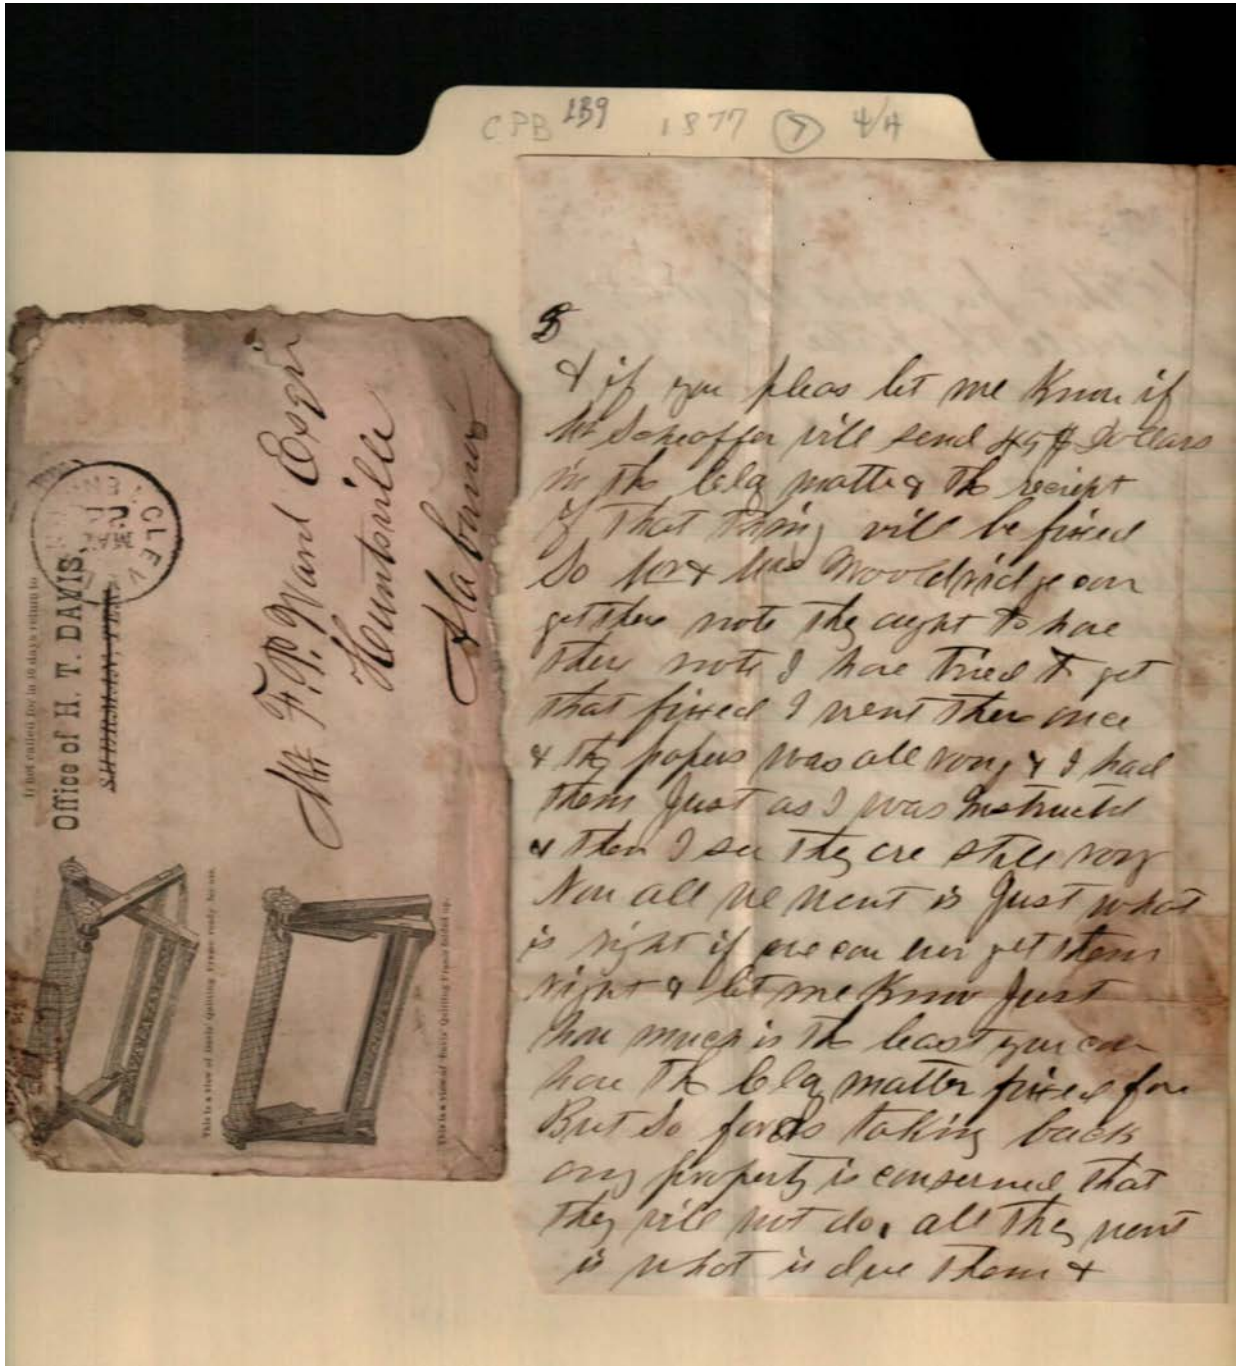 CPB 189 1877 7 4/4
If not called for in 10 days return to
Office of H. T. DAVIS,
SHERMAN, TEX
CLEV TENN
MAR
Mr F. P. Ward Esqr
Huntsville
Alabama
This is a view of Quilting Frame ready for use.
This is a view of Quilting Frame folded up.
5
& if you pleas let me Know if
Mr Scheaffer will send Dollars
in the matter & the reciept
if That thing will be fixed
So Mr & Mrs Wooldridge can
get there note they aught to have
there note I have tried to get
that fixed I went there once
& the papers was all rong & I had
them Just as I was Instructed
& then I see They are still rong
Now all we went is Just what
is right if we can ever get them
right & let me Know Just
how much is the least you can
have The matter fixed for
But So far as taking back
any property is conserned that
they will not do. all they went
is what is due them &